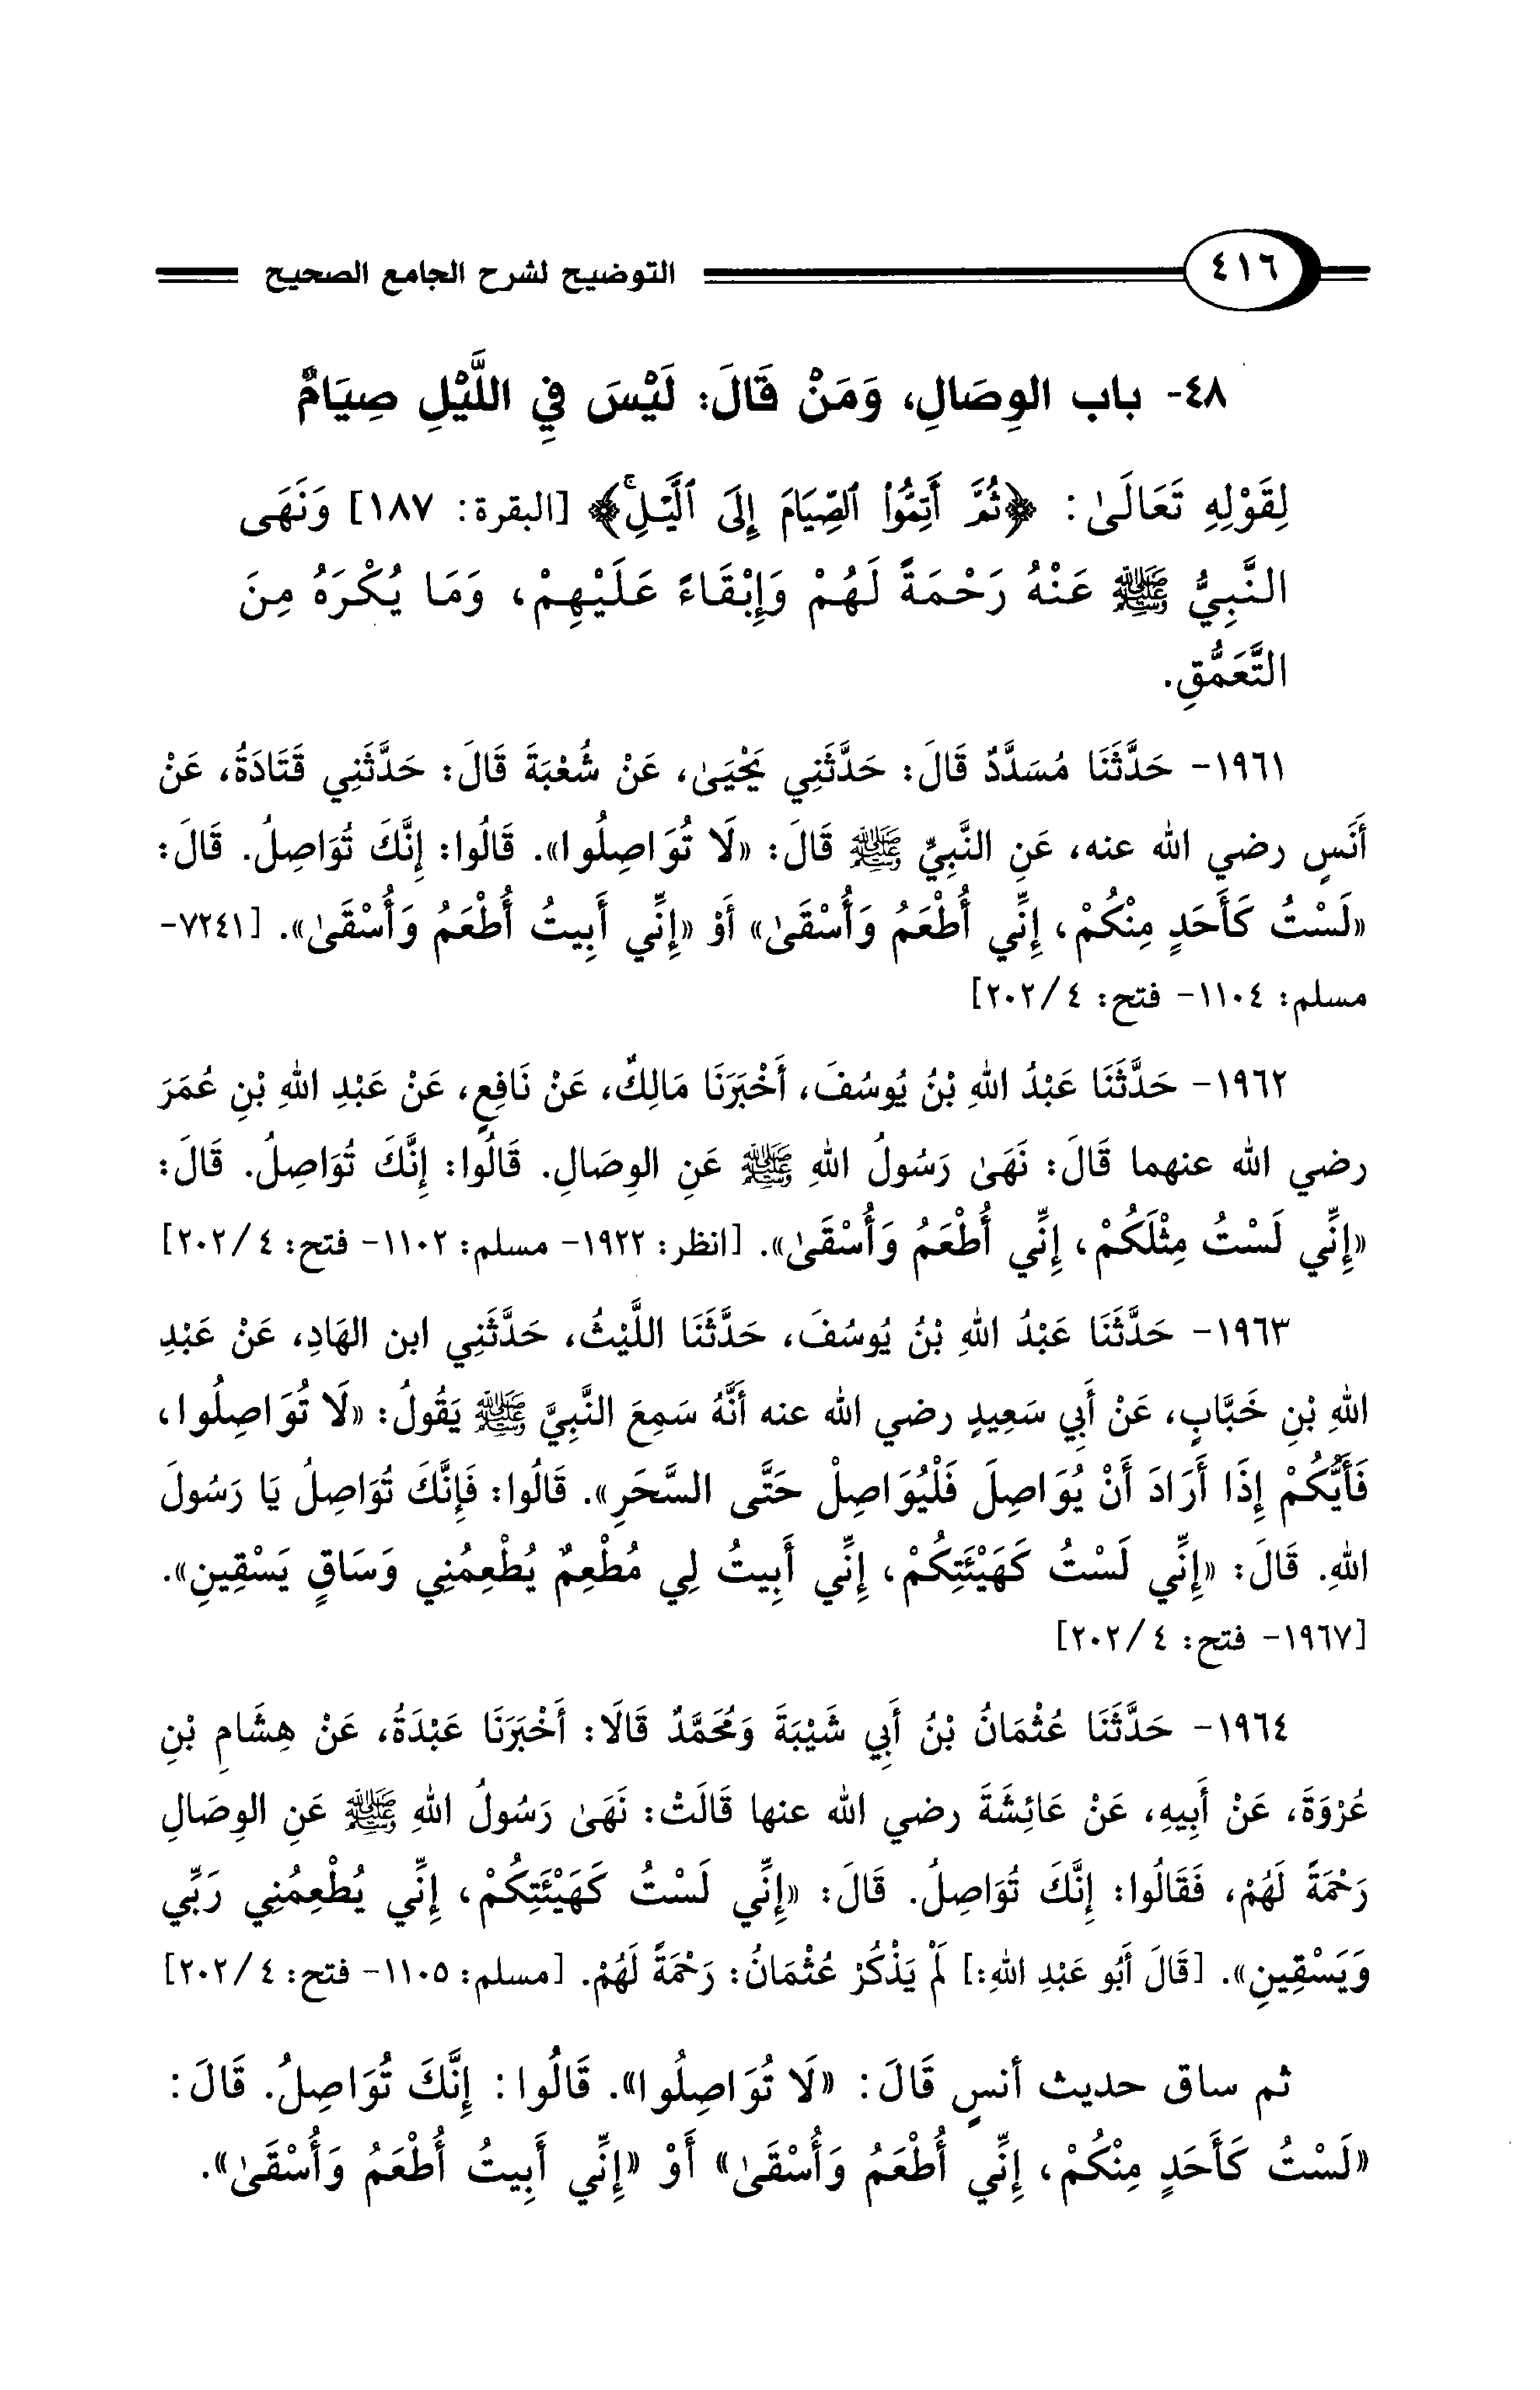 ٤١٦ التوضيح لشرح الجامع الصحيح
٤٨- باب الوِصَالِ، وَمَنْ قَالَ: لَيْسَ فِي اللَّيْلِ صِيَامٌ
لِقَوْلِهِ تَعَالَىٰ: ﴿ثُمَّ أَتِمُّوا۟ ٱلصِّيَامَ إِلَى ٱلَّيْلِۚ﴾ [البقرة: ١٨٧] وَنَهَى
النَّبِيُّ ﷺ عَنْهُ رَحْمَةً لَهُمْ وَإِبْقَاءً عَلَيْهِمْ، وَمَا يُكْرَهُ مِنَ
التَّعَمُّقِ.
١٩٦١- حَدَّثَنَا مُسَدَّدٌ قَالَ: حَدَّثَنِي يَحْيَىٰ، عَنْ شُعْبَةَ قَالَ: حَدَّثَنِي قَتَادَةُ، عَنْ
أَنَسٍ رضي الله عنه، عَنِ النَّبِيِّ ﷺ قَالَ: «لَا تُوَاصِلُوا». قَالُوا: إِنَّكَ تُوَاصِلُ. قَالَ:
«لَسْتُ كَأَحَدٍ مِنْكُمْ، إِنِّي أُطْعَمُ وَأُسْقَىٰ» أَوْ «إِنِّي أَبِيتُ أُطْعَمُ وَأُسْقَىٰ». [٧٢٤١-
مسلم: ١١٠٤- فتح: ٤/ ٢٠٢]
١٩٦٢- حَدَّثَنَا عَبْدُ اللهِ بْنُ يُوسُفَ، أَخْبَرَنَا مَالِكٌ، عَنْ نَافِعٍ، عَنْ عَبْدِ اللهِ بْنِ عُمَرَ
رضي الله عنهما قَالَ: نَهَىٰ رَسُولُ اللهِ ﷺ عَنِ الوِصَالِ. قَالُوا: إِنَّكَ تُوَاصِلُ. قَالَ:
«إِنِّي لَسْتُ مِثْلَكُمْ، إِنِّي أُطْعَمُ وَأُسْقَىٰ». [انظر: ١٩٢٢- مسلم: ١١٠٢- فتح: ٤/ ٢٠٢]
١٩٦٣- حَدَّثَنَا عَبْدُ اللهِ بْنُ يُوسُفَ، حَدَّثَنَا اللَّيْثُ، حَدَّثَنِي ابن الهَادِ، عَنْ عَبْدِ
اللهِ بْنِ خَبَّابٍ، عَنْ أَبِي سَعِيدٍ رضي الله عنه أَنَّهُ سَمِعَ النَّبِيَّ ﷺ يَقُولُ: «لَا تُوَاصِلُوا،
فَأَيُّكُمْ إِذَا أَرَادَ أَنْ يُوَاصِلَ فَلْيُوَاصِلْ حَتَّى السَّحَرِ». قَالُوا: فَإِنَّكَ تُوَاصِلُ يَا رَسُولَ
اللهِ. قَالَ: «إِنِّي لَسْتُ كَهَيْئَتِكُمْ، إِنِّي أَبِيتُ لِي مُطْعِمٌ يُطْعِمُنِي وَسَاقٍ يَسْقِينِ».
[١٩٦٧- فتح: ٤/ ٢٠٢]
١٩٦٤- حَدَّثَنَا عُثْمَانُ بْنُ أَبِي شَيْبَةَ وَمُحَمَّدٌ قَالَا: أَخْبَرَنَا عَبْدَةُ، عَنْ هِشَامِ بْنِ
عُرْوَةَ، عَنْ أَبِيهِ، عَنْ عَائِشَةَ رضي الله عنها قَالَتْ: نَهَىٰ رَسُولُ اللهِ ﷺ عَنِ الوِصَالِ
رَحْمَةً لَهُمْ، فَقَالُوا: إِنَّكَ تُوَاصِلُ. قَالَ: «إِنِّي لَسْتُ كَهَيْئَتِكُمْ، إِنِّي يُطْعِمُنِي رَبِّي
وَيَسْقِينِ». [قَالَ أَبُو عَبْدِ اللهِ:] لَمْ يَذْكُرْ عُثْمَانُ: رَحْمَةً لَهُمْ. [مسلم: ١١٠٥- فتح: ٤/ ٢٠٢]
ثم ساق حديث أنسٍ قَالَ: «لَا تُوَاصِلُوا». قَالُوا: إِنَّكَ تُوَاصِلُ. قَالَ:
«لَسْتُ كَأَحَدٍ مِنْكُمْ، إِنِّي أُطْعَمُ وَأُسْقَىٰ» أَوْ «إِنِّي أَبِيتُ أُطْعَمُ وَأُسْقَىٰ».